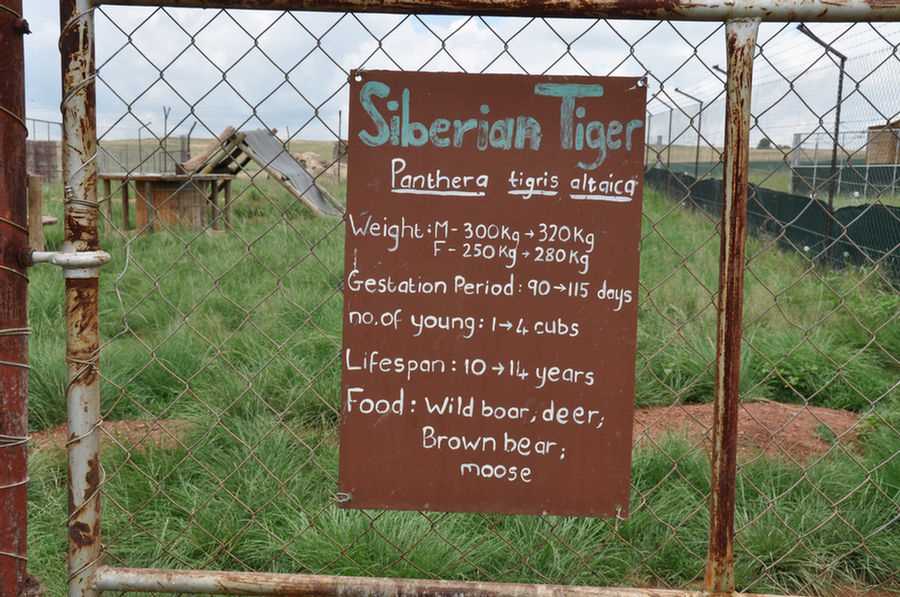 Siberian Tiger
Panthera tigris altaica
Weight: M - 300kg → 320kg
F - 250kg → 280kg
Gestation Period: 90 → 115 days
no. of young: 1 → 4 cubs
Lifespan: 10 → 14 years
Food: Wild boar; deer;
Brown bear;
moose